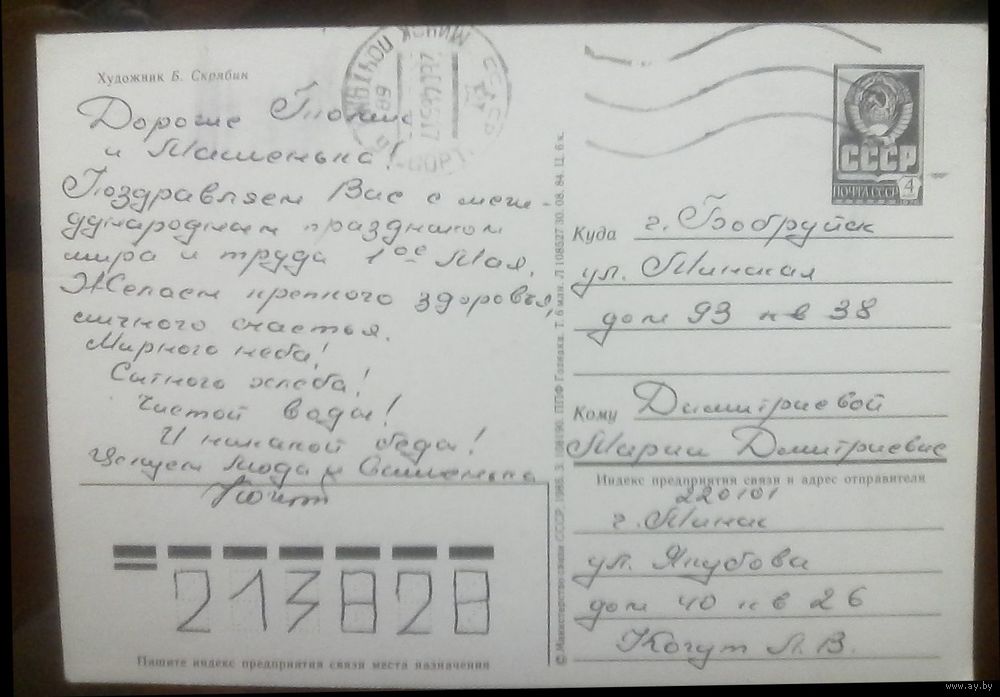 Художник Б. Скрябин
Дорогие
и Машенька!
Поздравляем Вас с меж-
дународным праздником
мира и труда 1ое Мая.
Желаем крепкого здоровья,
личного счастья.
Мирного неба!
Сытного хлеба!
Чистой воды!
И никакой беды!
Целуем Люда и
МИНСК ПОЧТАМТ
СССР
ПОЧТА СССР
4
Куда г. Бобруйск
ул. Минская
дом 93 кв 38
Кому Димитриевой
Марии Дмитриевне
Индекс предприятия связи и адрес отправителя
220101
г. Минск
ул. Якубова
дом 40 кв 26
Когут Л. В.
213828
Пишите индекс предприятия связи места назначения
© Министерство связи СССР, 1985. ППФ Гознака. Т. 6 млн. Л 108527 30. 08. 84. Ц. 6 к.
www.ay.by